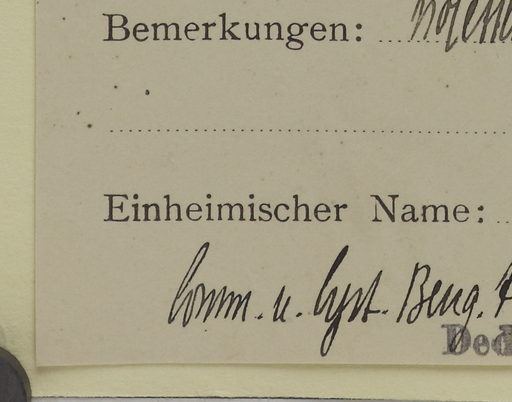 Bemerkungen:
Einheimischer Name:
Comm. u. Cyst. Beng.
Ded